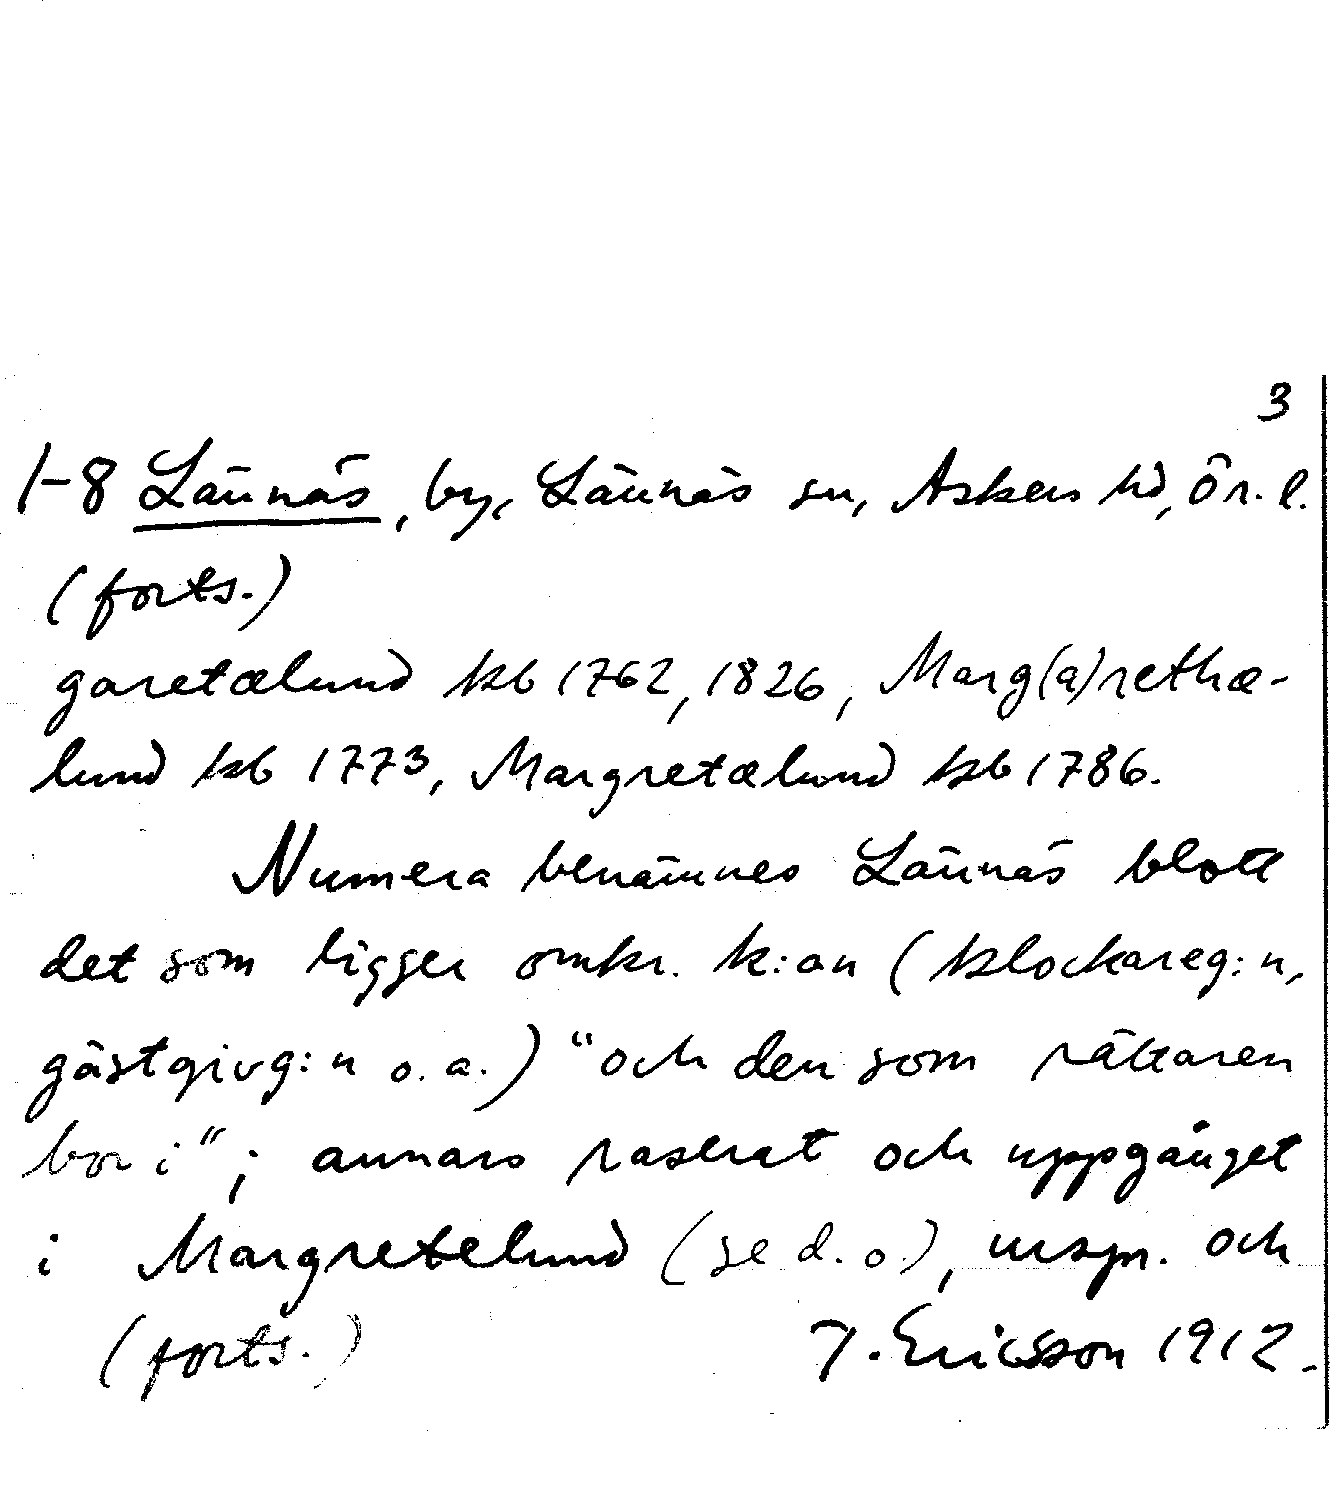 3
1-8 Lännäs, by, Lännäs sn, Askers hd, Ör. l.
(forts.)
garetælund kb 1762, 1826, Marg(a)rethæ-
lund kb 1773, Margretælund kb 1786.
Numera benämnes Lännäs blott
det som ligger omkr. k:an (klockareg:n,
gästgivg:n o. a.) "och den som rättaren
bor i"; annars raserat och uppgånget
i Margretelund (se d. o.), urspr. och
(forts.) J. Ericsson 1912.